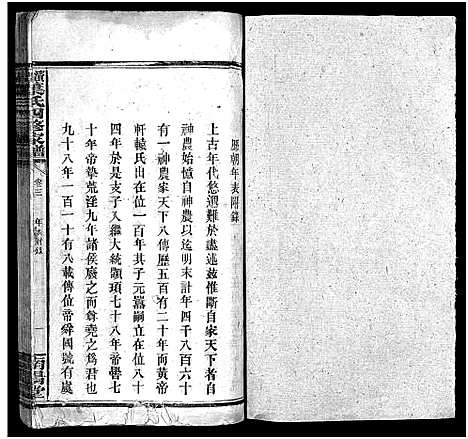 歷朝年表附錄
上古年代悠遐難於盡述茲惟斷自家天下者自
神農始憶自神農以迄明末計年四千八百六十
有一神農家天下八傳歷五百有二十年而黃帝
軒轅氏出在位一百年其子元囂嗣立在位八十
四年於是支子入繼大統顓頊七十八年帝嚳七
十年帝摯荒淫九年諸侯廢之而尊堯之為君也
九十八年一百一十有八載傳位帝舜國號有虞
葉氏四修家譜
卷三
年表附錄
一
南陽堂